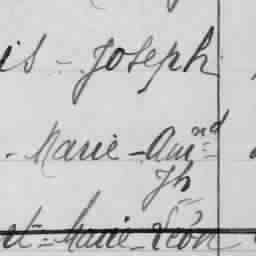 is - Joseph
- Marie - Am<sup>nd</sup>
Jh
et = Marie - Léon